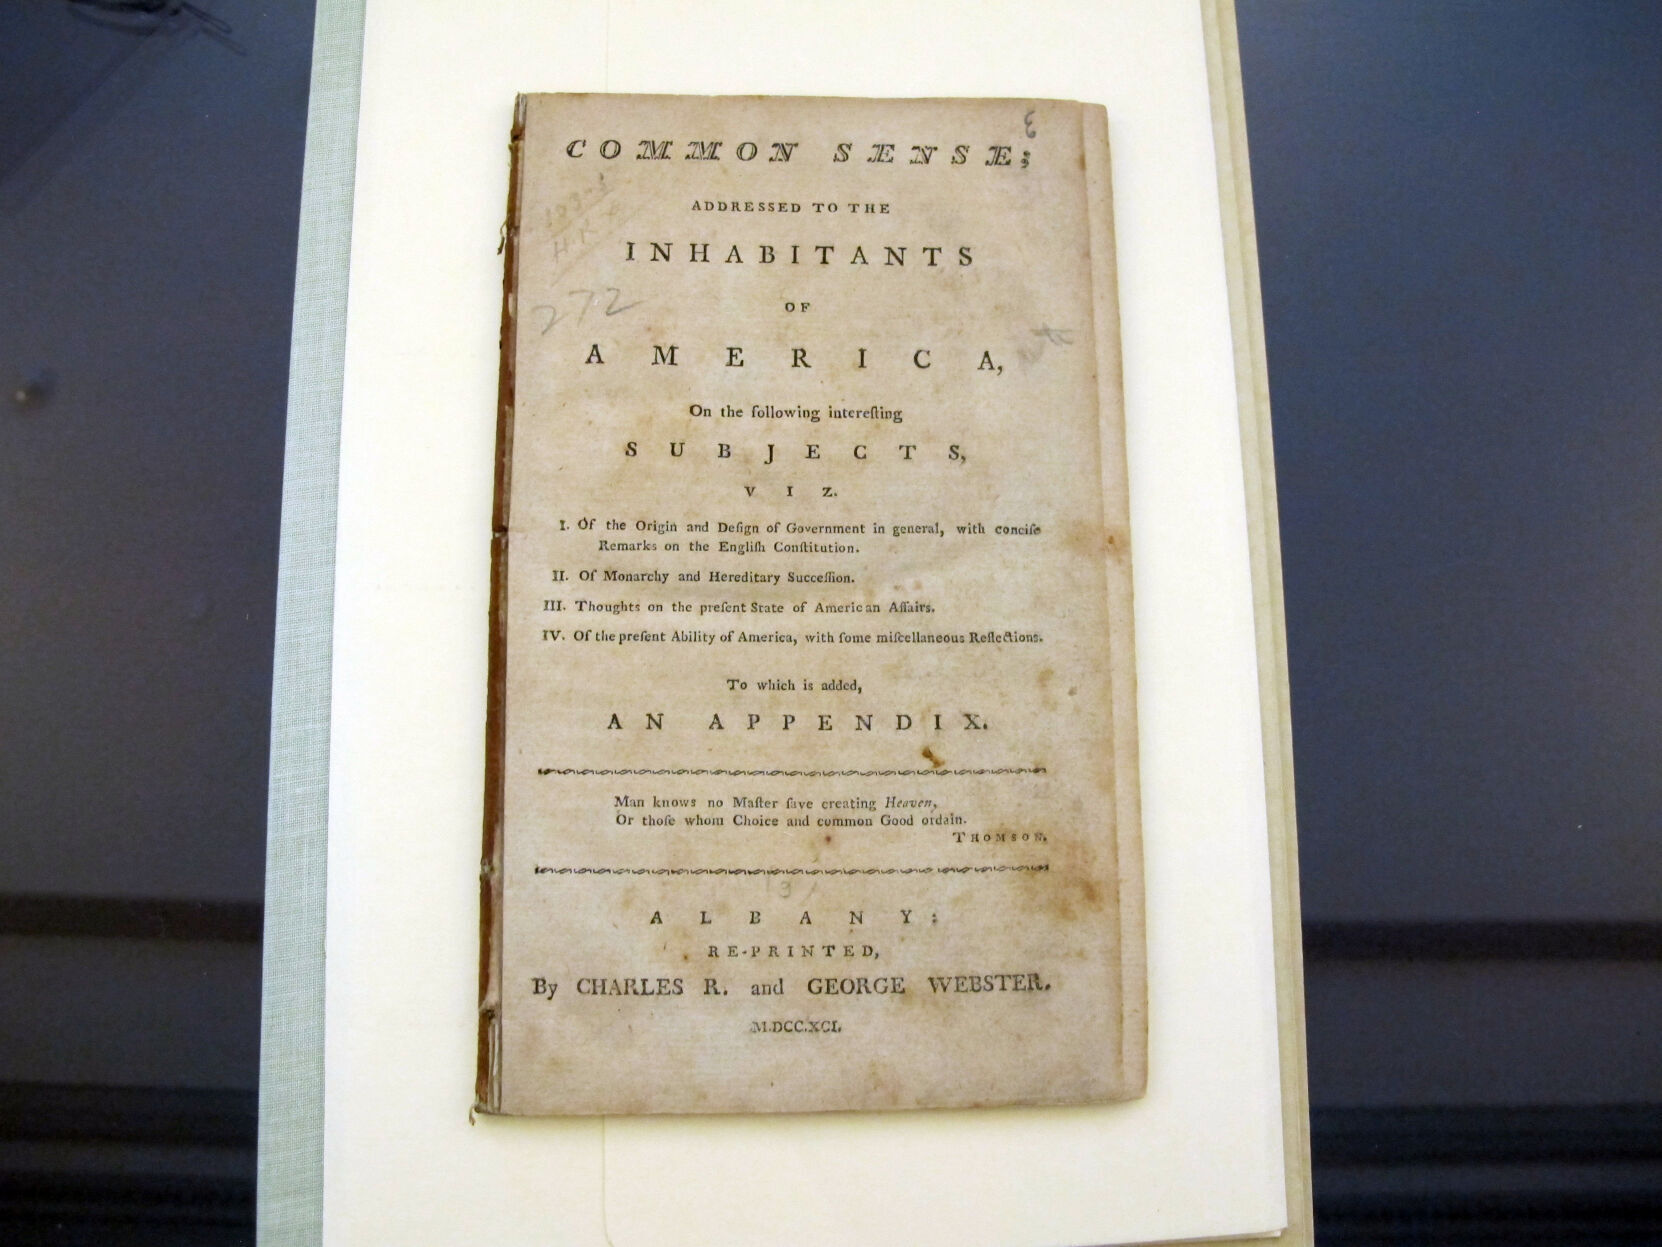 COMMON SENSE;
ADDRESSED TO THE
INHABITANTS
OF
AMERICA,
On the following intereſting
SUBJECTS,
VIZ.
I. Of the Origin and Deſign of Government in general, with conciſe
Remarks on the Engliſh Conſtitution.
II. Of Monarchy and Hereditary Succeſſion.
III. Thoughts on the preſent State of American Affairs.
IV. Of the preſent Ability of America, with ſome miſcellaneous Reflections.
To which is added,
AN APPENDIX.
272
Man knows no Maſter ſave creating Heaven,
Or thoſe whom Choice and common Good ordain.
THOMSON.
ALBANY:
RE-PRINTED,
By CHARLES R. and GEORGE WEBSTER.
M.DCC.XCI.